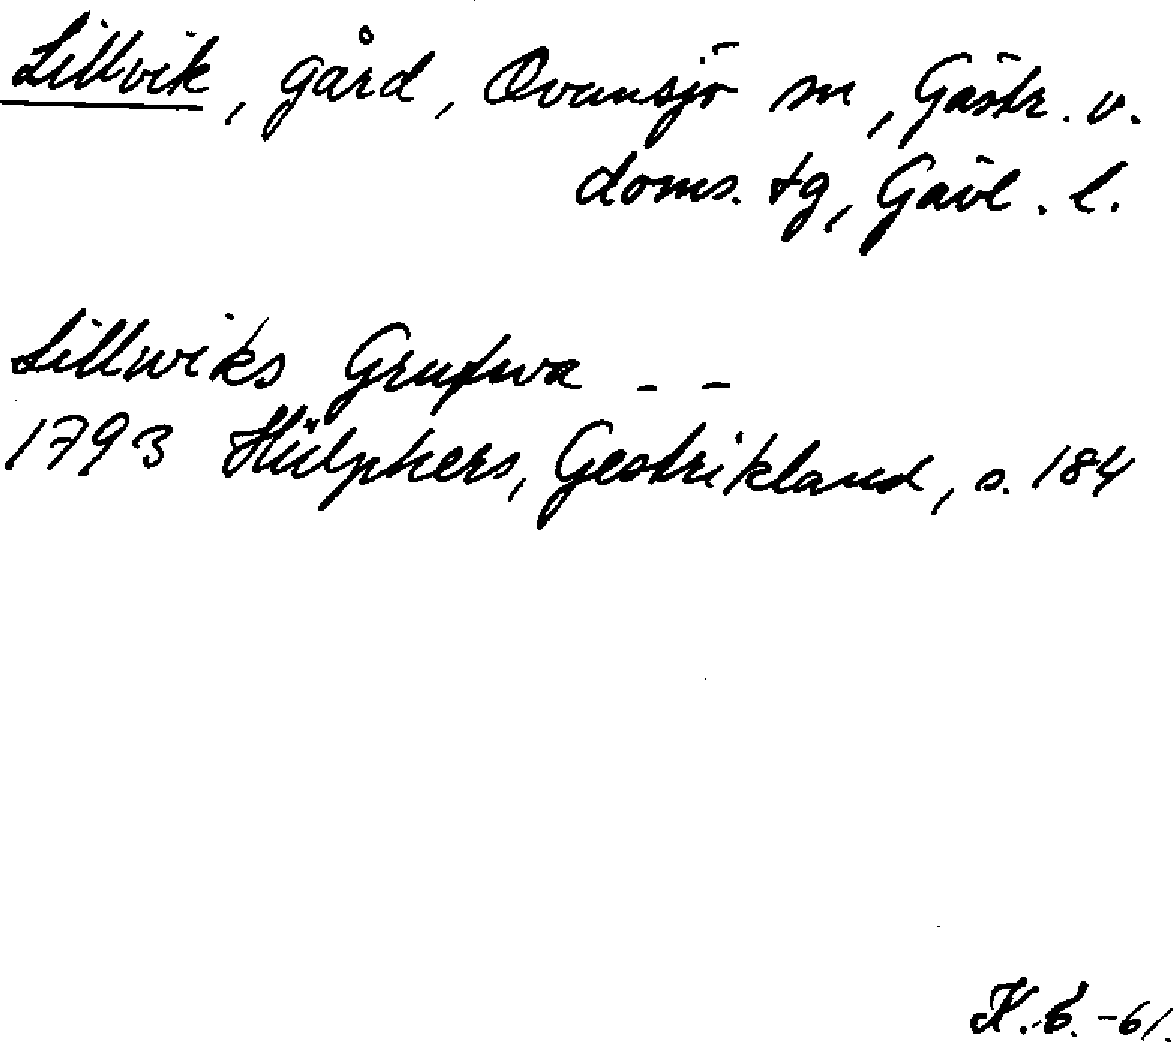 Lillvik, gård, Ovansjö sn, Gästr. v.
doms. tg, Gävl. l.
Lillwiks Grufwa - -
1793 Hülphers, Gestrikland, s. 184
K. -61.